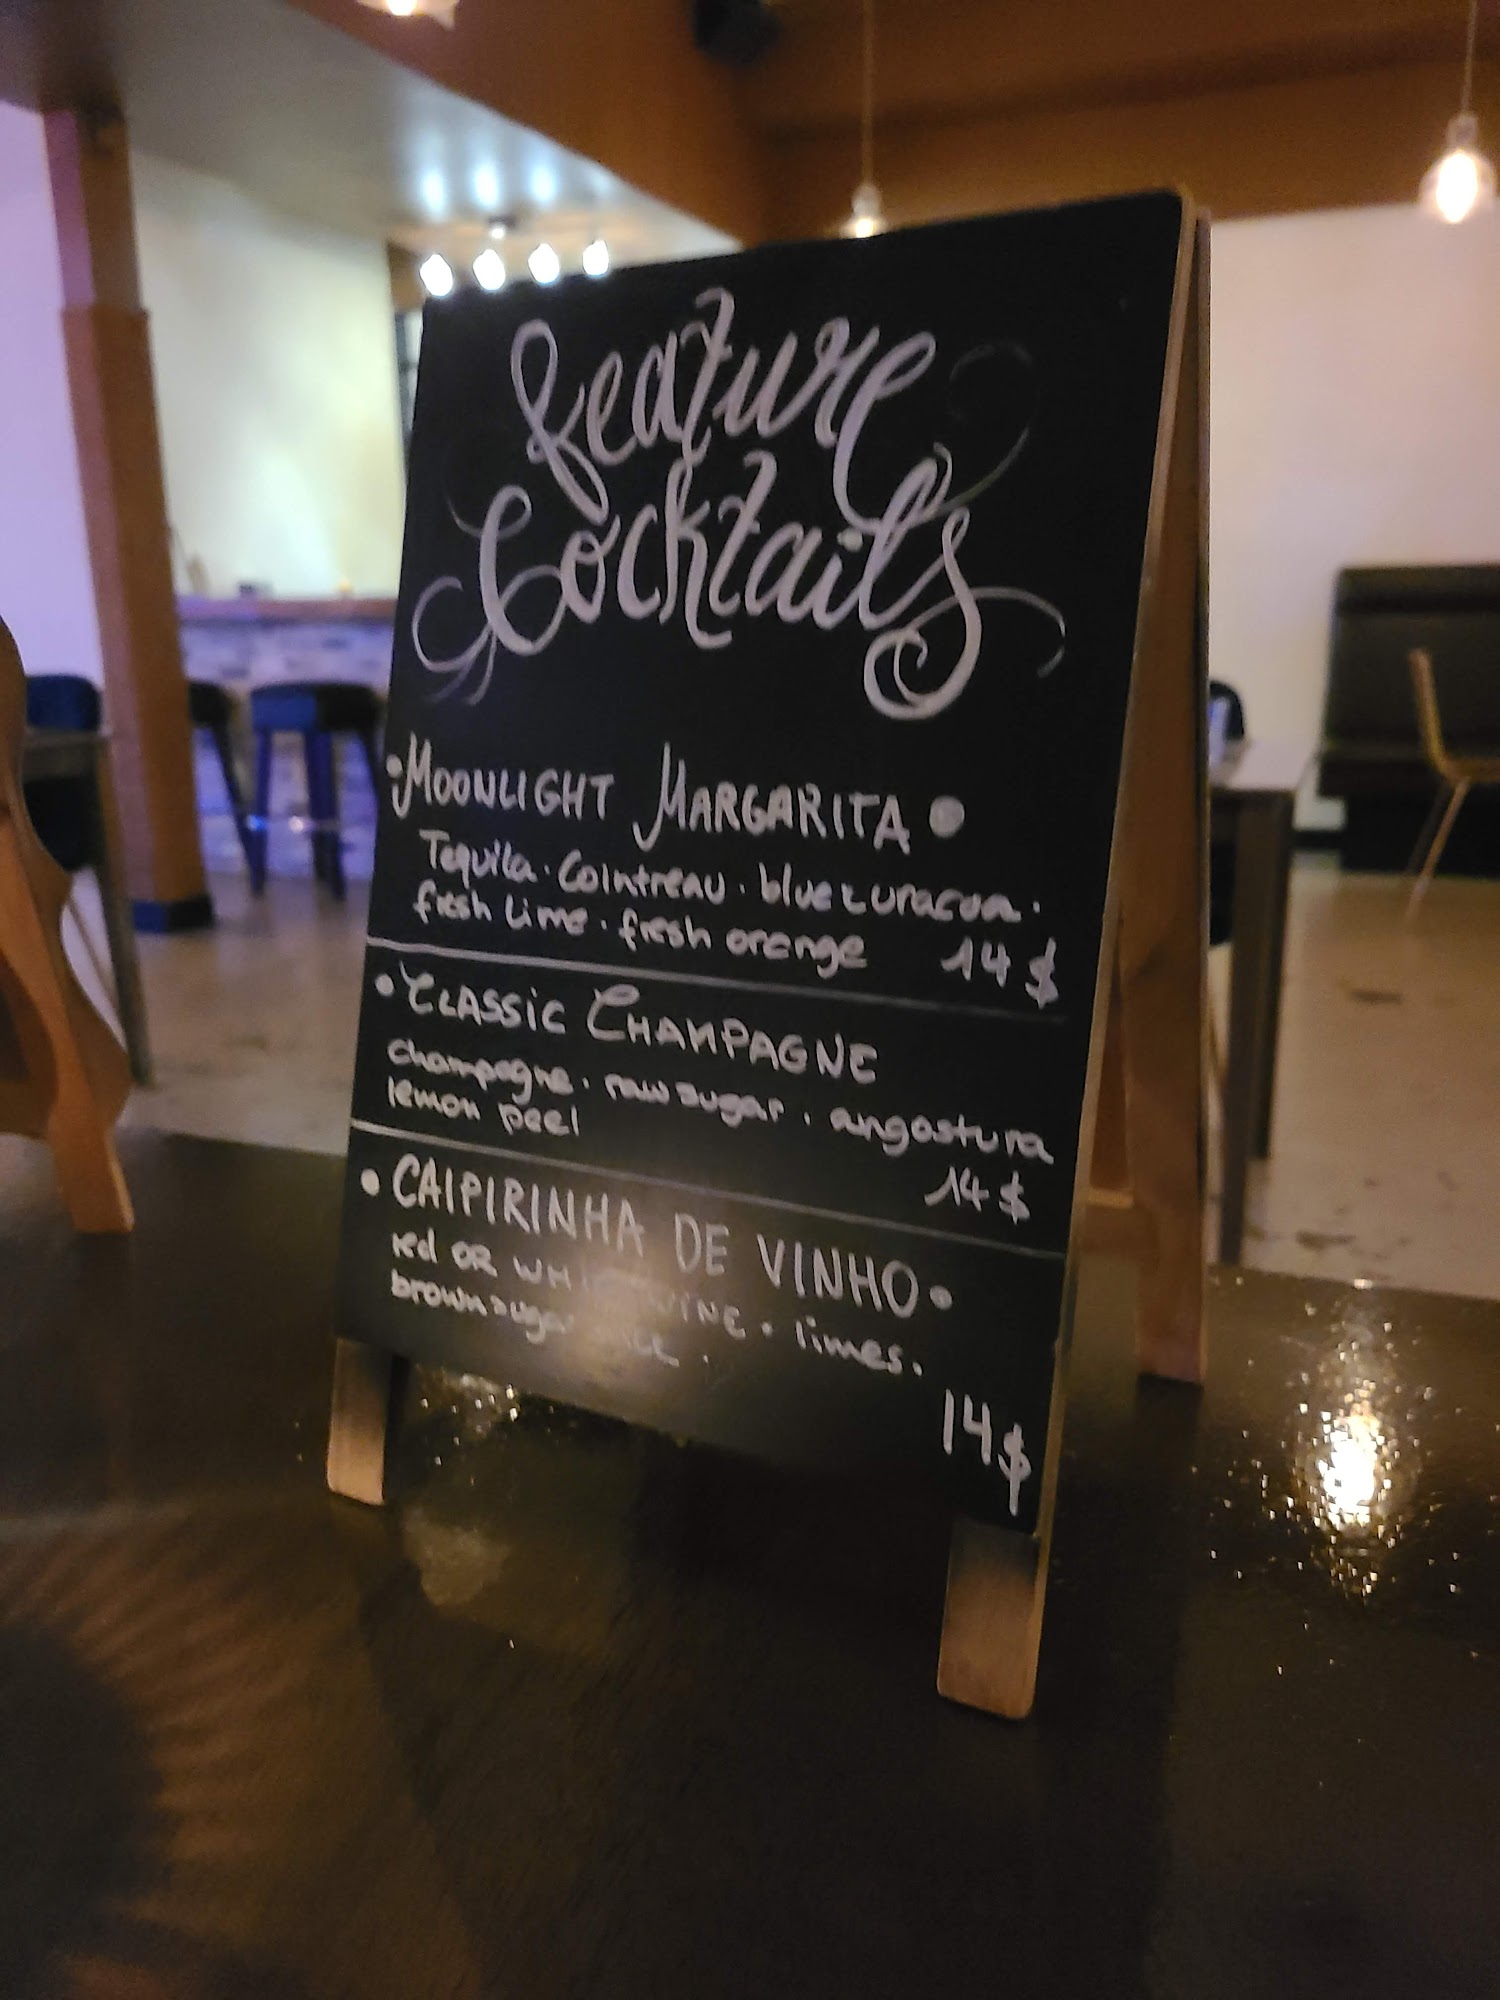 feature
Cocktails
• MOONLIGHT MARGARITA •
Tequila · Cointreau · blue curacoa ·
fresh lime · fresh orange 14 $
• CLASSIC CHAMPAGNE
champagne · raw sugar · angostura
lemon peel
14 $
• CAIPIRINHA DE VINHO •
red OR WHITE WINE · limes ·
brown sugar
14 $